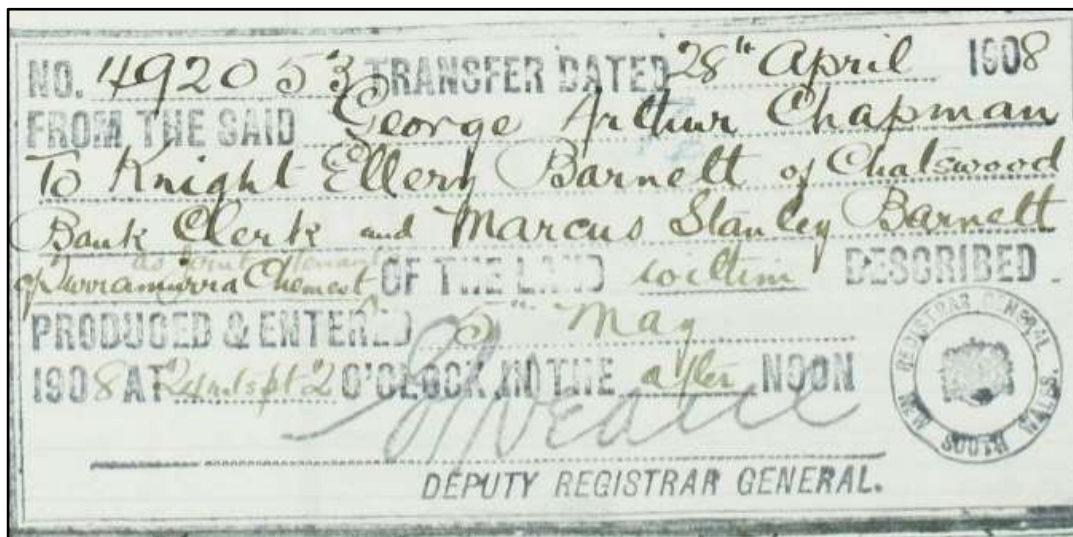 NO. 492053 TRANSFER DATED 28th April 1908
FROM THE SAID George Arthur Chapman
To Knight Ellery Barnett of Chatswood
Bank Clerk and Marcus Stanley Barnett
as joint tenants
of Turramurra Chemist OF THE LAND within DESCRIBED
PRODUCED & ENTERED 5th May
1908 AT 24 mts pt 2 O'CLOCK IN THE after NOON
DEPUTY REGISTRAR GENERAL.
REGISTRAR GENERAL
NEW SOUTH WALES.